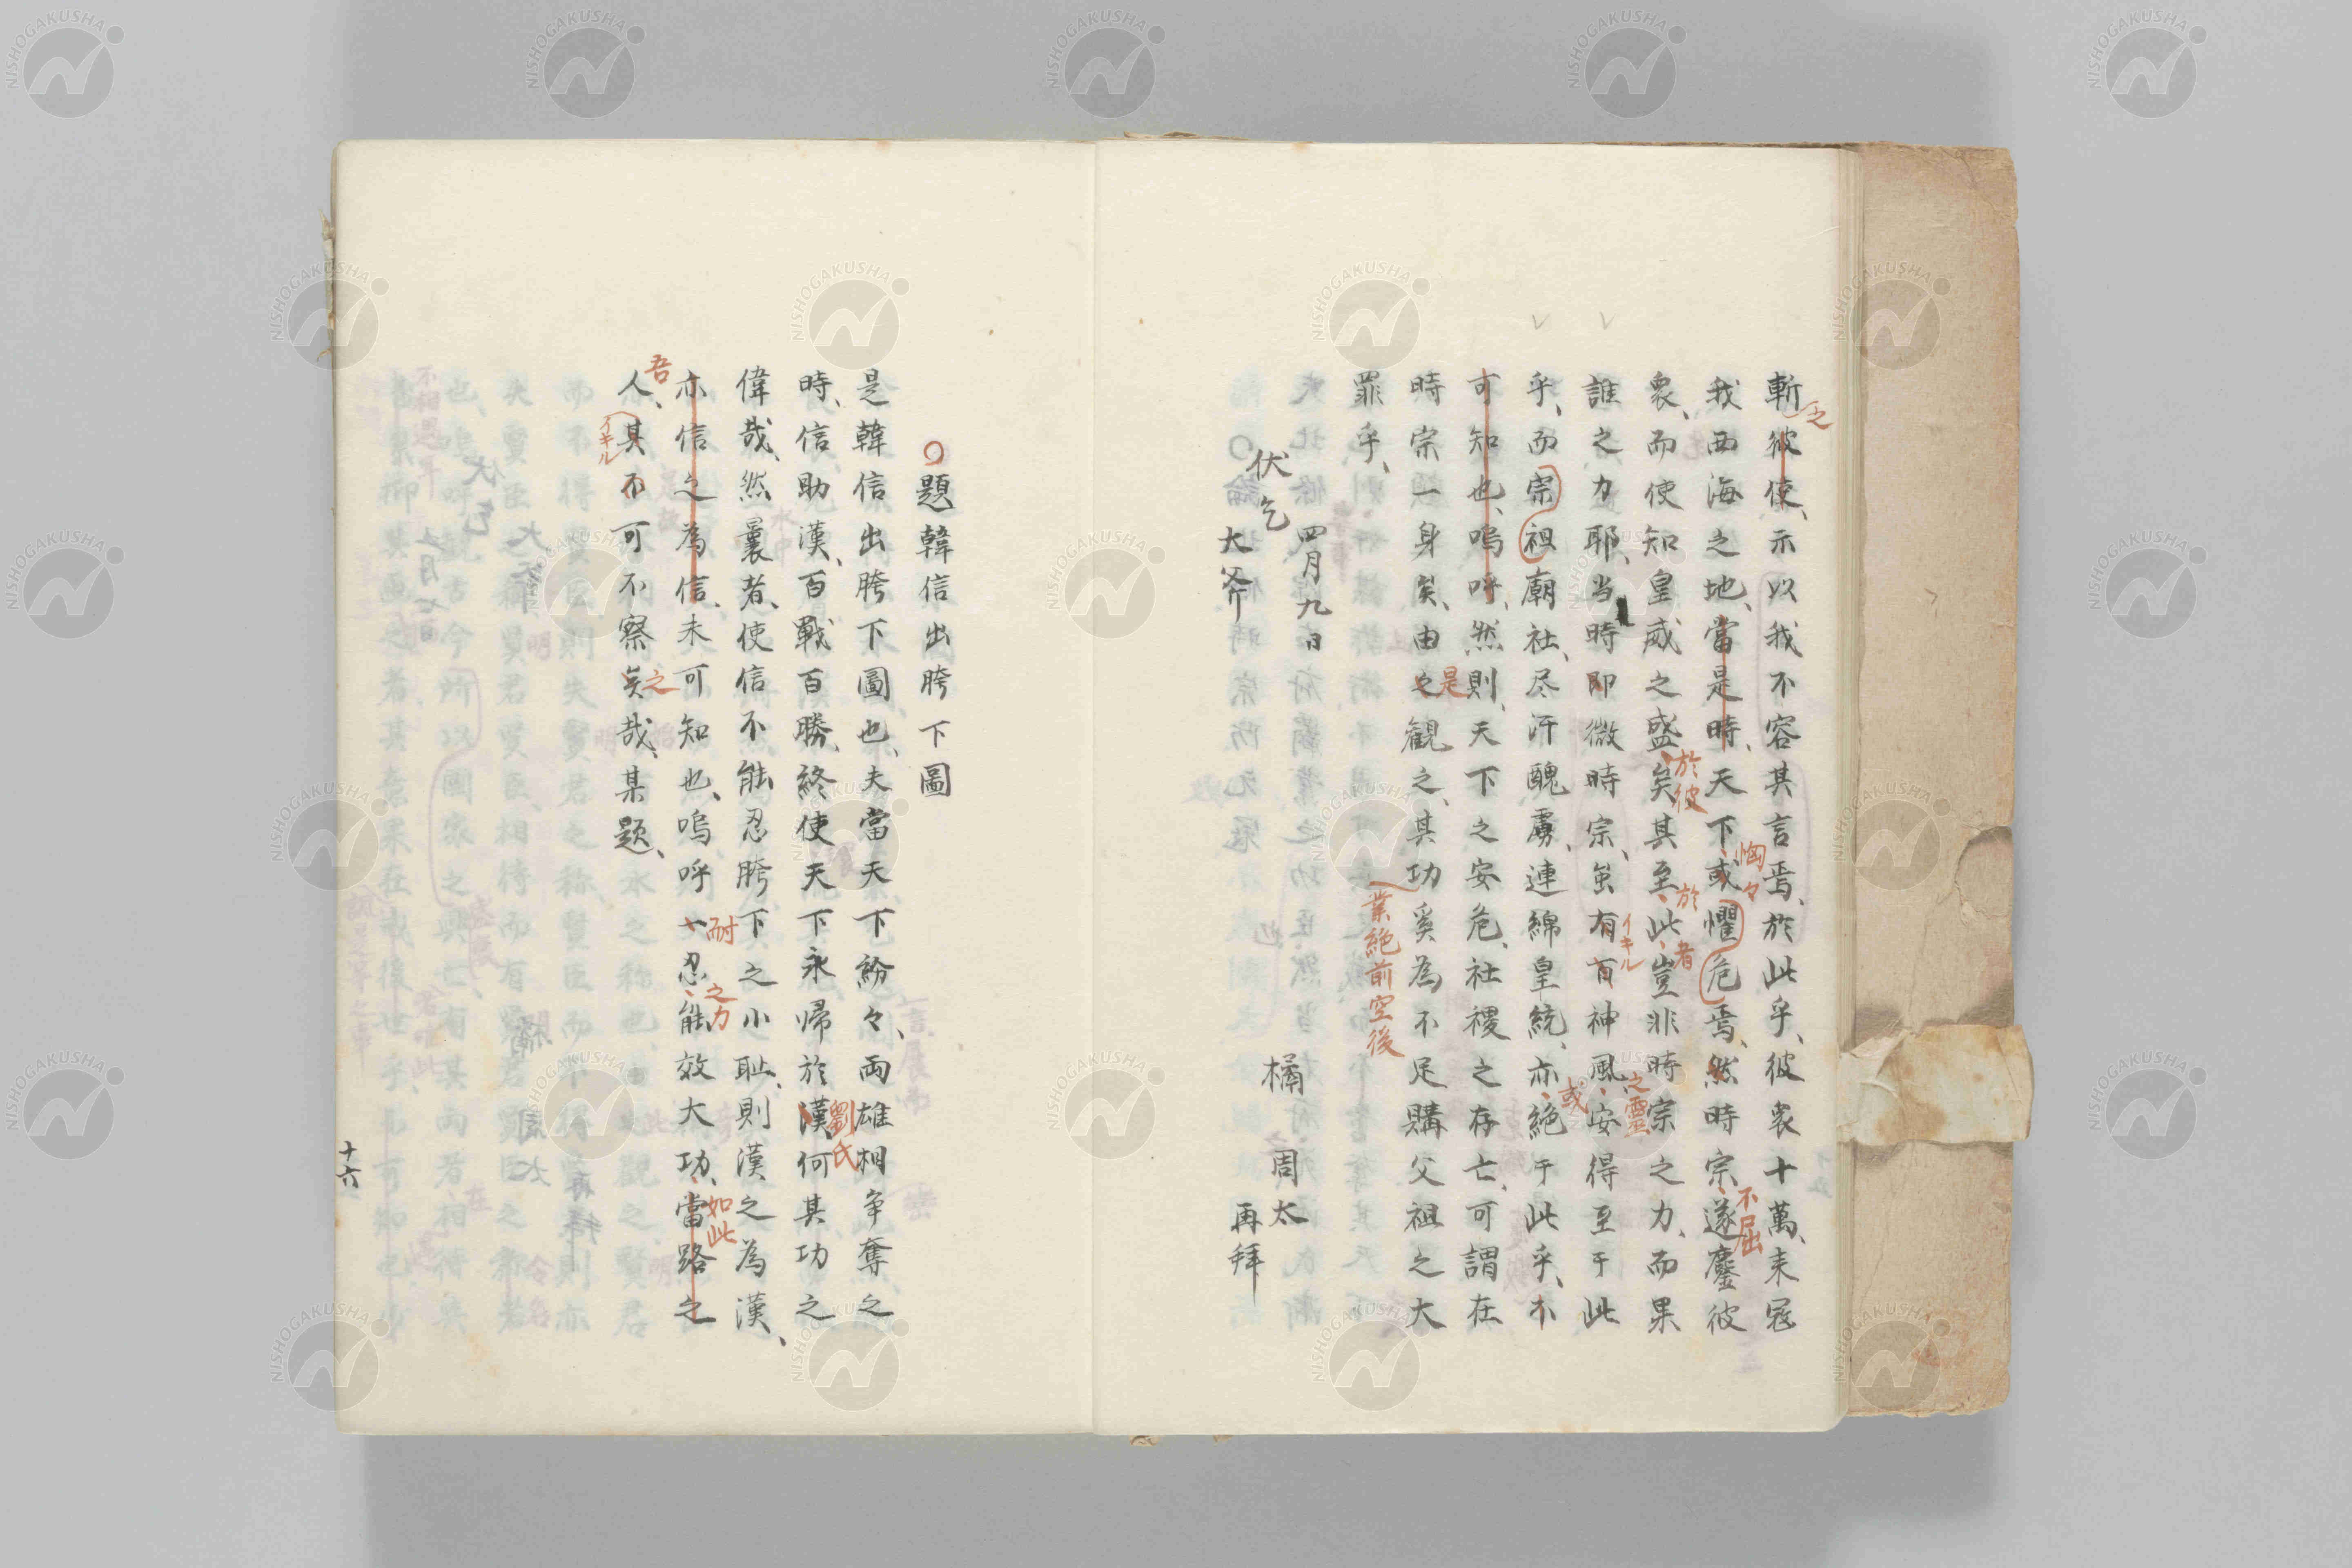 斬彼使、示以我不容其言焉、於此乎、彼衆十萬、来冦
之
我西海之地、當是時、天下或懼危焉、然時宗遂鏖彼
恟々
不屈
衆、而使知皇威之盛矣、其至此、豈非時宗之力、而果
於彼
於
者
誰之力耶、当時即微時宗、虽有百神風、安得至于此
イキル
之靈
乎、而宗祖廟社、尽汗醜虜、連綿皇統、亦絶于此乎、不
或
可知也、嗚呼、然則、天下之安危、社稷之存亡、可謂在
時宗一身矣、由之観之、其功奚為不足購父祖之大
是
業絶前空後
罪乎、
四月九日
橘周太
伏乞
大斧
再拜
○題韓信出胯下圖
是韓信出胯下圖也、夫當天下紛々、両雄相争奪之
時、信助漢、百戰百勝、終使天下永歸於漢、何其功之
劉氏
偉哉、然曩者、使信不能忍胯下之小耻、則漢之為漢、
亦信之為信、未可知也、嗚呼一忍能效大功、當路之
耐
之力
如此
人、其不可不察矣哉、某題、
吾
イキル
之
十六
NISHOGAKUSHA